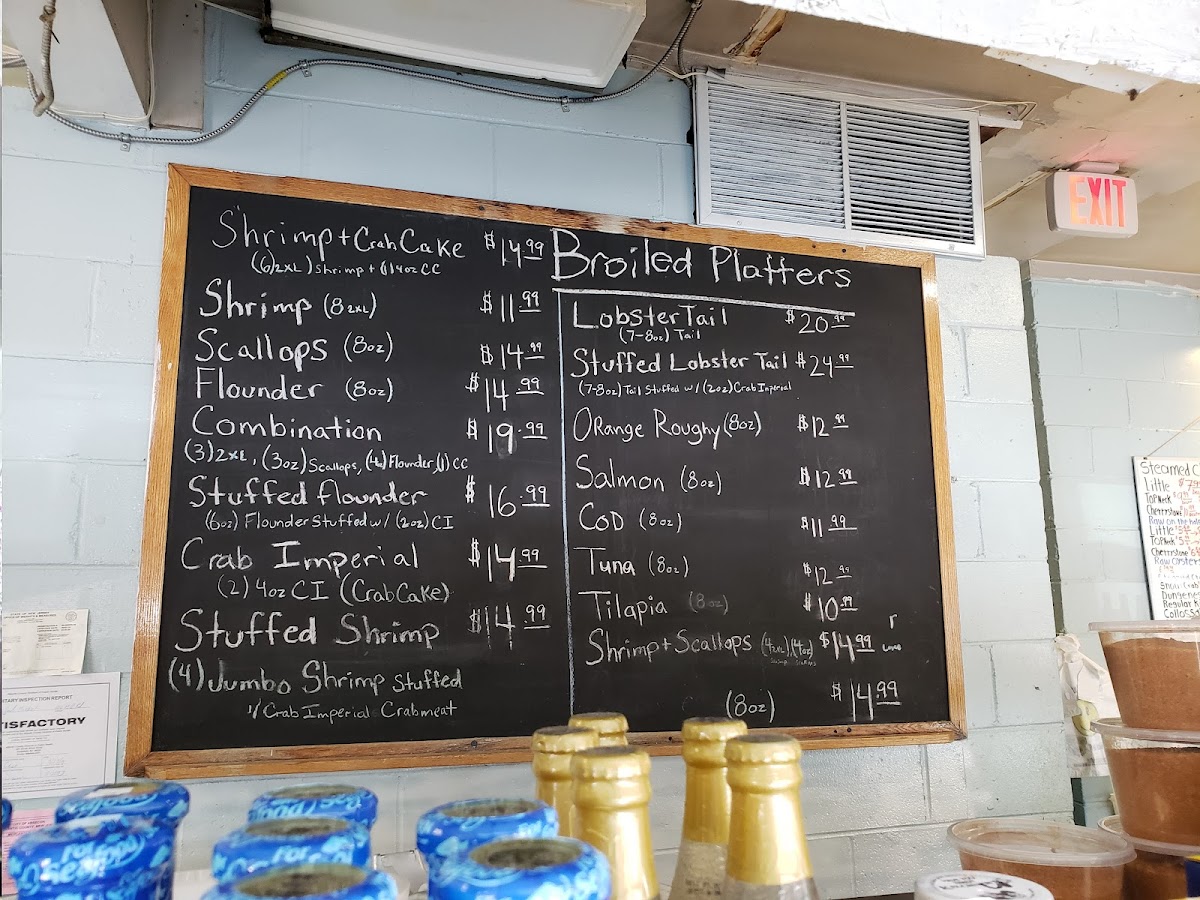 Shrimp + Crab Cake $14.99
(6) 2XL) Shrimp + (1) 4oz CC
Shrimp (8 2XL) $11.99
Scallops (8oz) $14.99
Flounder (8oz) $14.99
Combination $19.99
(3) 2XL, (3oz) Scallops, (4oz) Flounder, (1) CC
Stuffed flounder $16.99
(6oz) Flounder Stuffed w/ (2oz) CI
Crab Imperial $14.99
(2) 4oz CI (CrabCake)
Stuffed Shrimp $14.99
(4) Jumbo Shrimp Stuffed
w/ Crab Imperial Crabmeat
Broiled Platters
Lobster Tail $20.99
(7-8oz) Tail
Stuffed Lobster Tail $24.99
(7-8oz) Tail Stuffed w/ (2oz) Crab Imperial
Orange Roughy (8oz) $12.99
Salmon (8oz) $12.99
COD (8oz) $11.99
Tuna (8oz) $12.99
Tilapia (8oz) $10.99
Shrimp + Scallops $14.99
(8oz) $14.99
EXIT
Steamed C
Little
TopNeck
Cherrystone
Raw on the hal
Little
TopNeck
Cherrystone
Raw Oysters
Snow Crab
Dungenes
Regular K
Coloss
ITARY INSPECTION REPORT
TISFACTORY